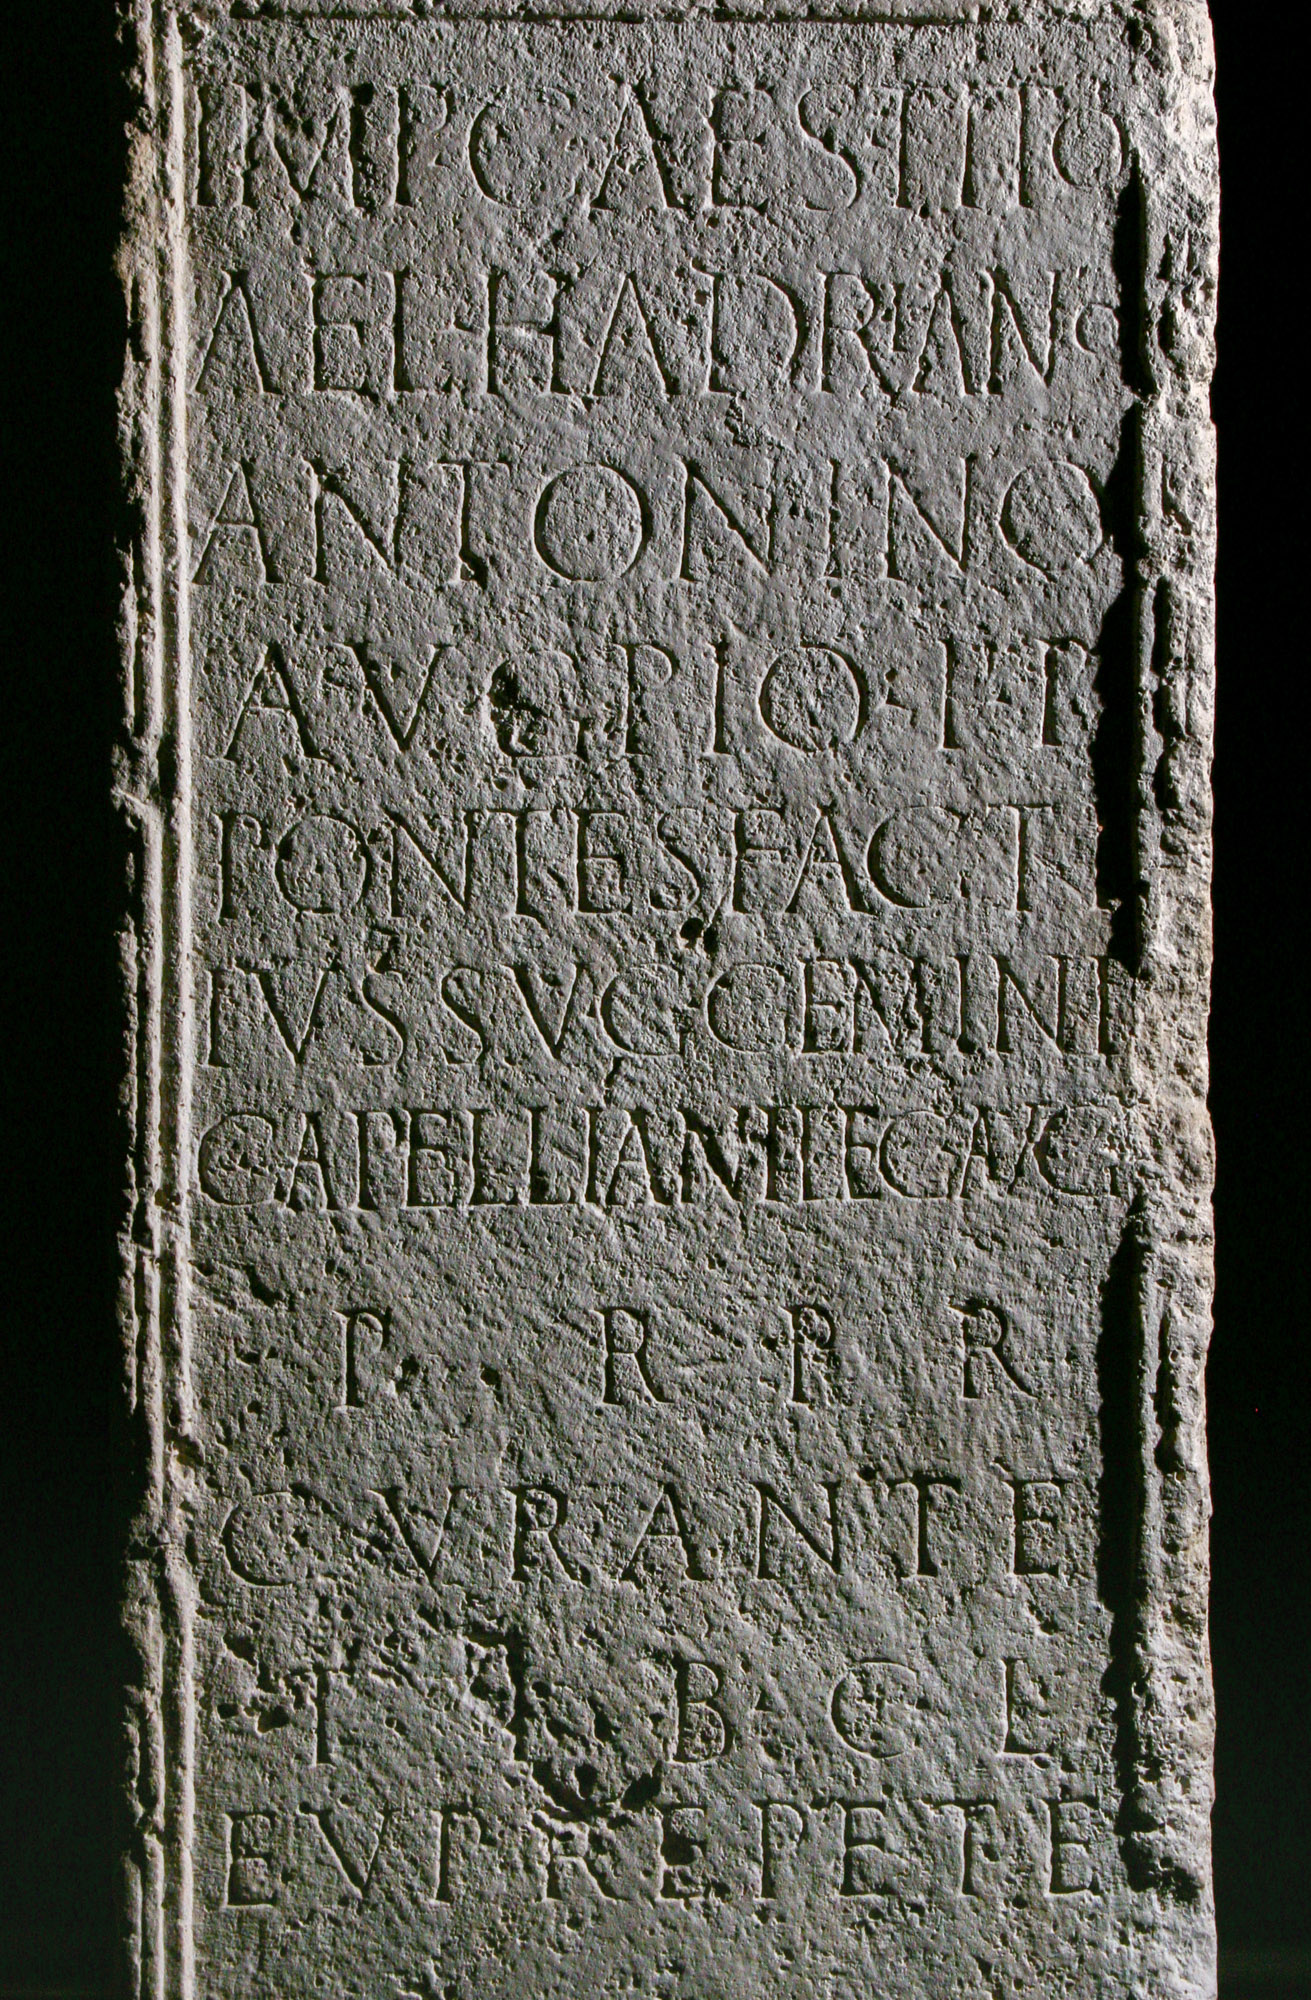 IMP·CAES·TITO
AEL·HADRIANO
ANTONINO
AVG PIO·P·P
PONTES FACTI
IVSSV·C·GEMINI
CAPELLIANI·LEG AVG
P R P R
CVRANTE
T I B·C L
EVTREPETE